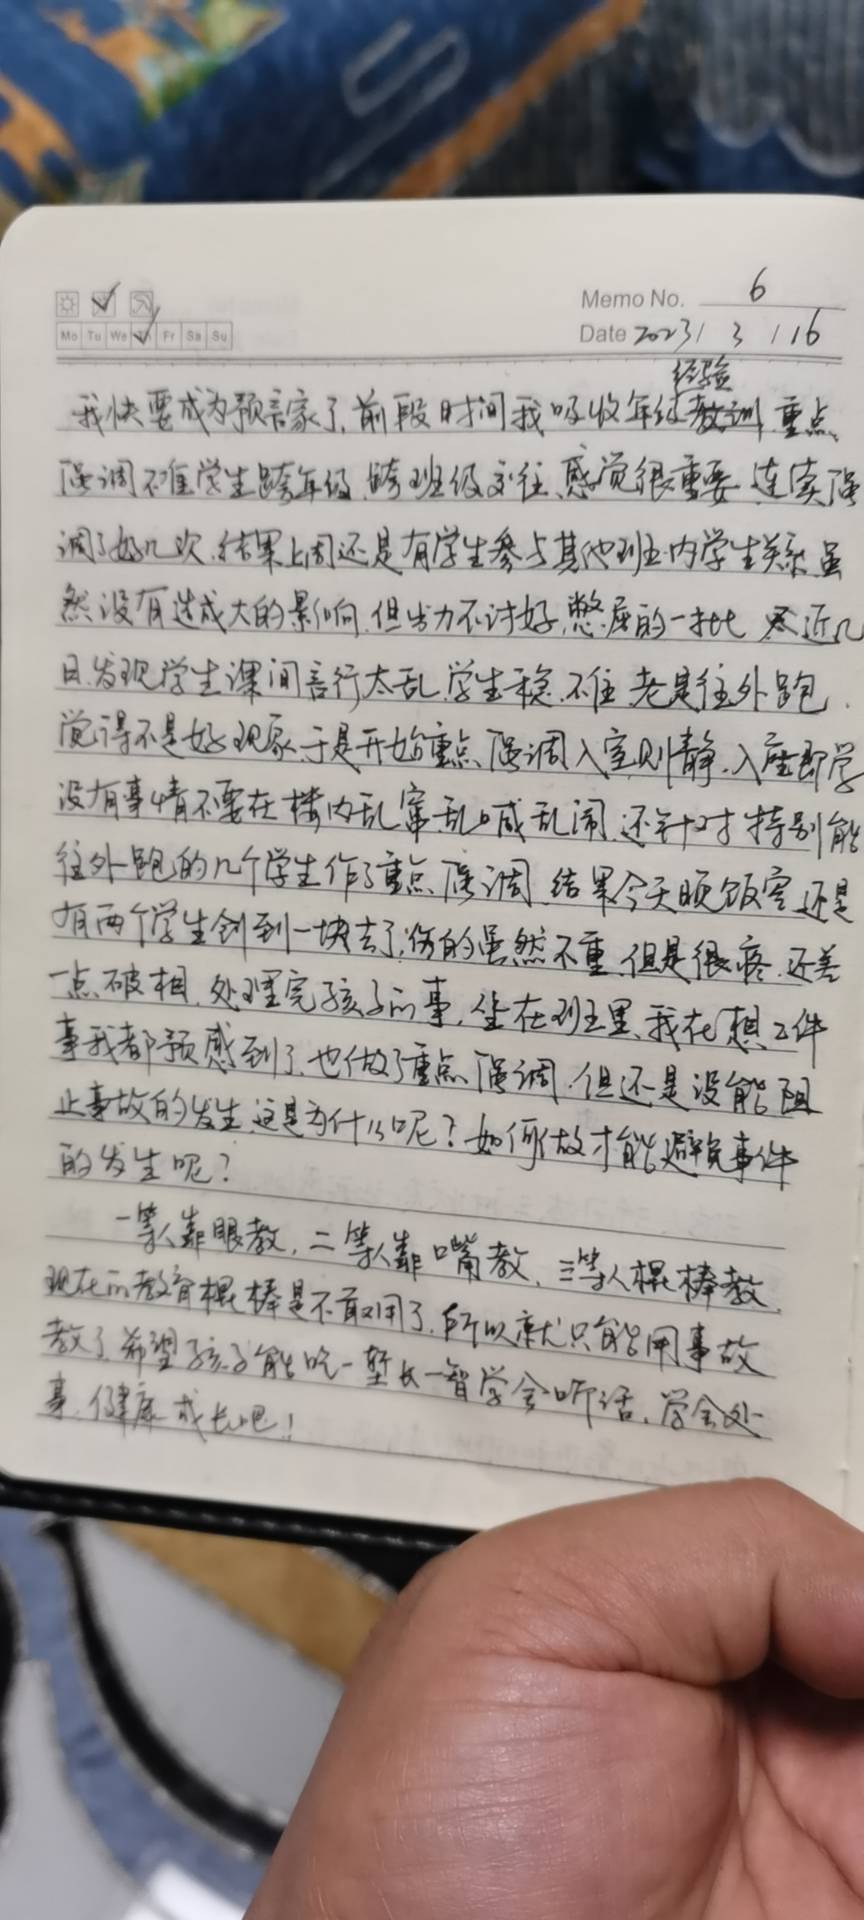 Memo No. 6
Mo Tu We Th Fr Sa Su
Date 2023 / 3 / 16
经验
我快要成为预言家了,前段时间我吸收年级教训,重点
强调不准学生跨年级,跨班级交往,感觉很重要,连续强
调了好几次,结果上周还是有学生参与其他班内学生关系,虽
然没有造成大的影响,但出力不讨好,憋屈的一批 近几
日,发现学生课间言行太乱,学生稳不住,老是往外跑,
觉得不是好现象,于是开始重点强调入室则静,入座即学
没有事情不要在楼内乱窜,乱喊乱闹,还针对特别能
往外跑的几个学生作了重点强调,结果今天晚饭空还是
有两个学生创到一块去了,伤的虽然不重,但是很疼,还差
一点破相,处理完孩子的事,坐在班里,我在想2件
事我都预感到了,也做了重点强调,但还是没能阻
止事故的发生,这是为什么呢?如何做才能避免事件
的发生呢?
一等人靠眼教,二等人靠嘴教,三等人棍棒教,
现在的教育棍棒是不敢用了,所以就只能用事故
教了,希望孩子能吃一堑长一智学会听话,学会处
事,健康成长吧!